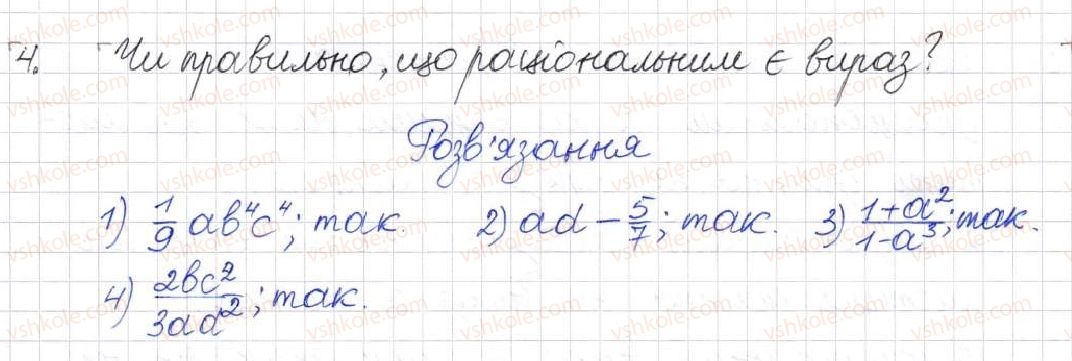 4. Чи правильно, що раціональним є вираз?
Розв'язання
1) 1/9 ab⁴c⁴; так. 2) ad − 5/7; так. 3) (1+a²)/(1-a³); так.
4) 2bc²/3ad²; так.